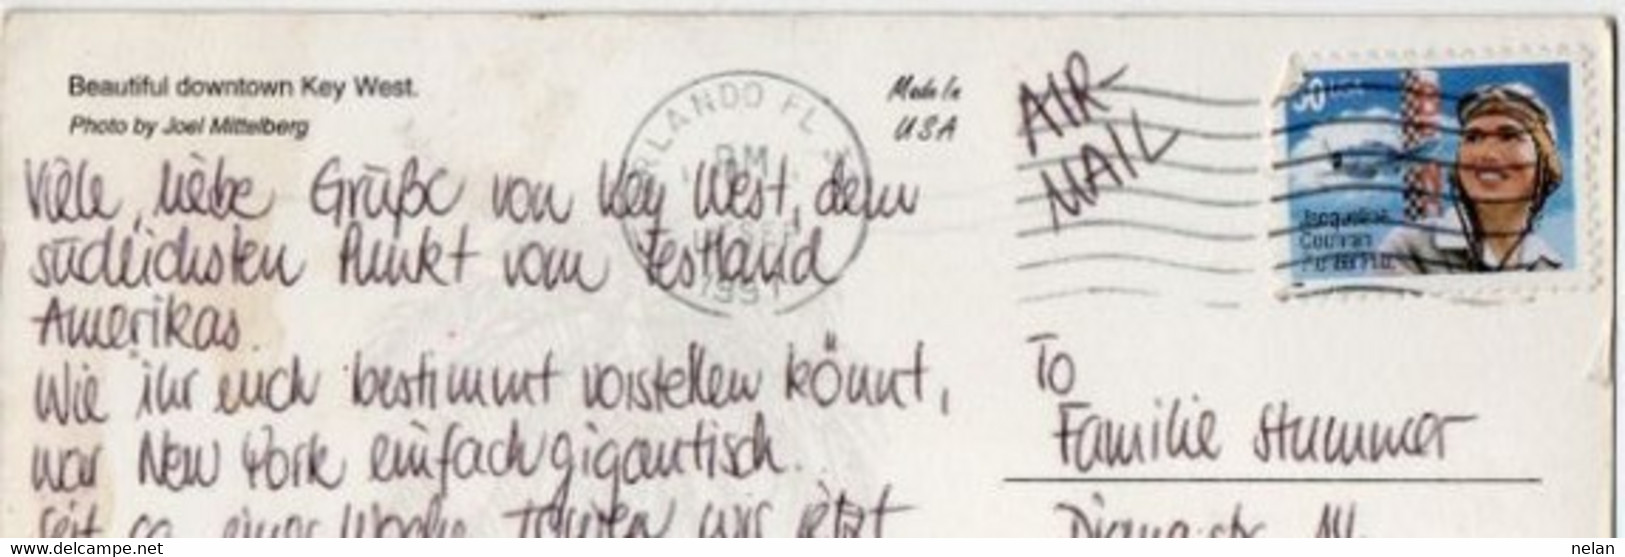 Beautiful downtown Key West.
Photo by Joel Mittelberg
Made In
USA
ORLANDO FL
PM
SEP
1991
AIR-
MAIL
50 USA
Jacqueline
Cochran
Pioneer Pilot
Viele, liebe Grüße von Key West, dem
südlichsten Punkt vom Festland
Amerikas.
Wie ihr euch bestimmt vorstellen könnt,
war New York einfach gigantisch.
Seit ca. einer Woche touren wir jetzt
To
Familie Stummer
Diana-str. 14
www.delcampe.net
nelan